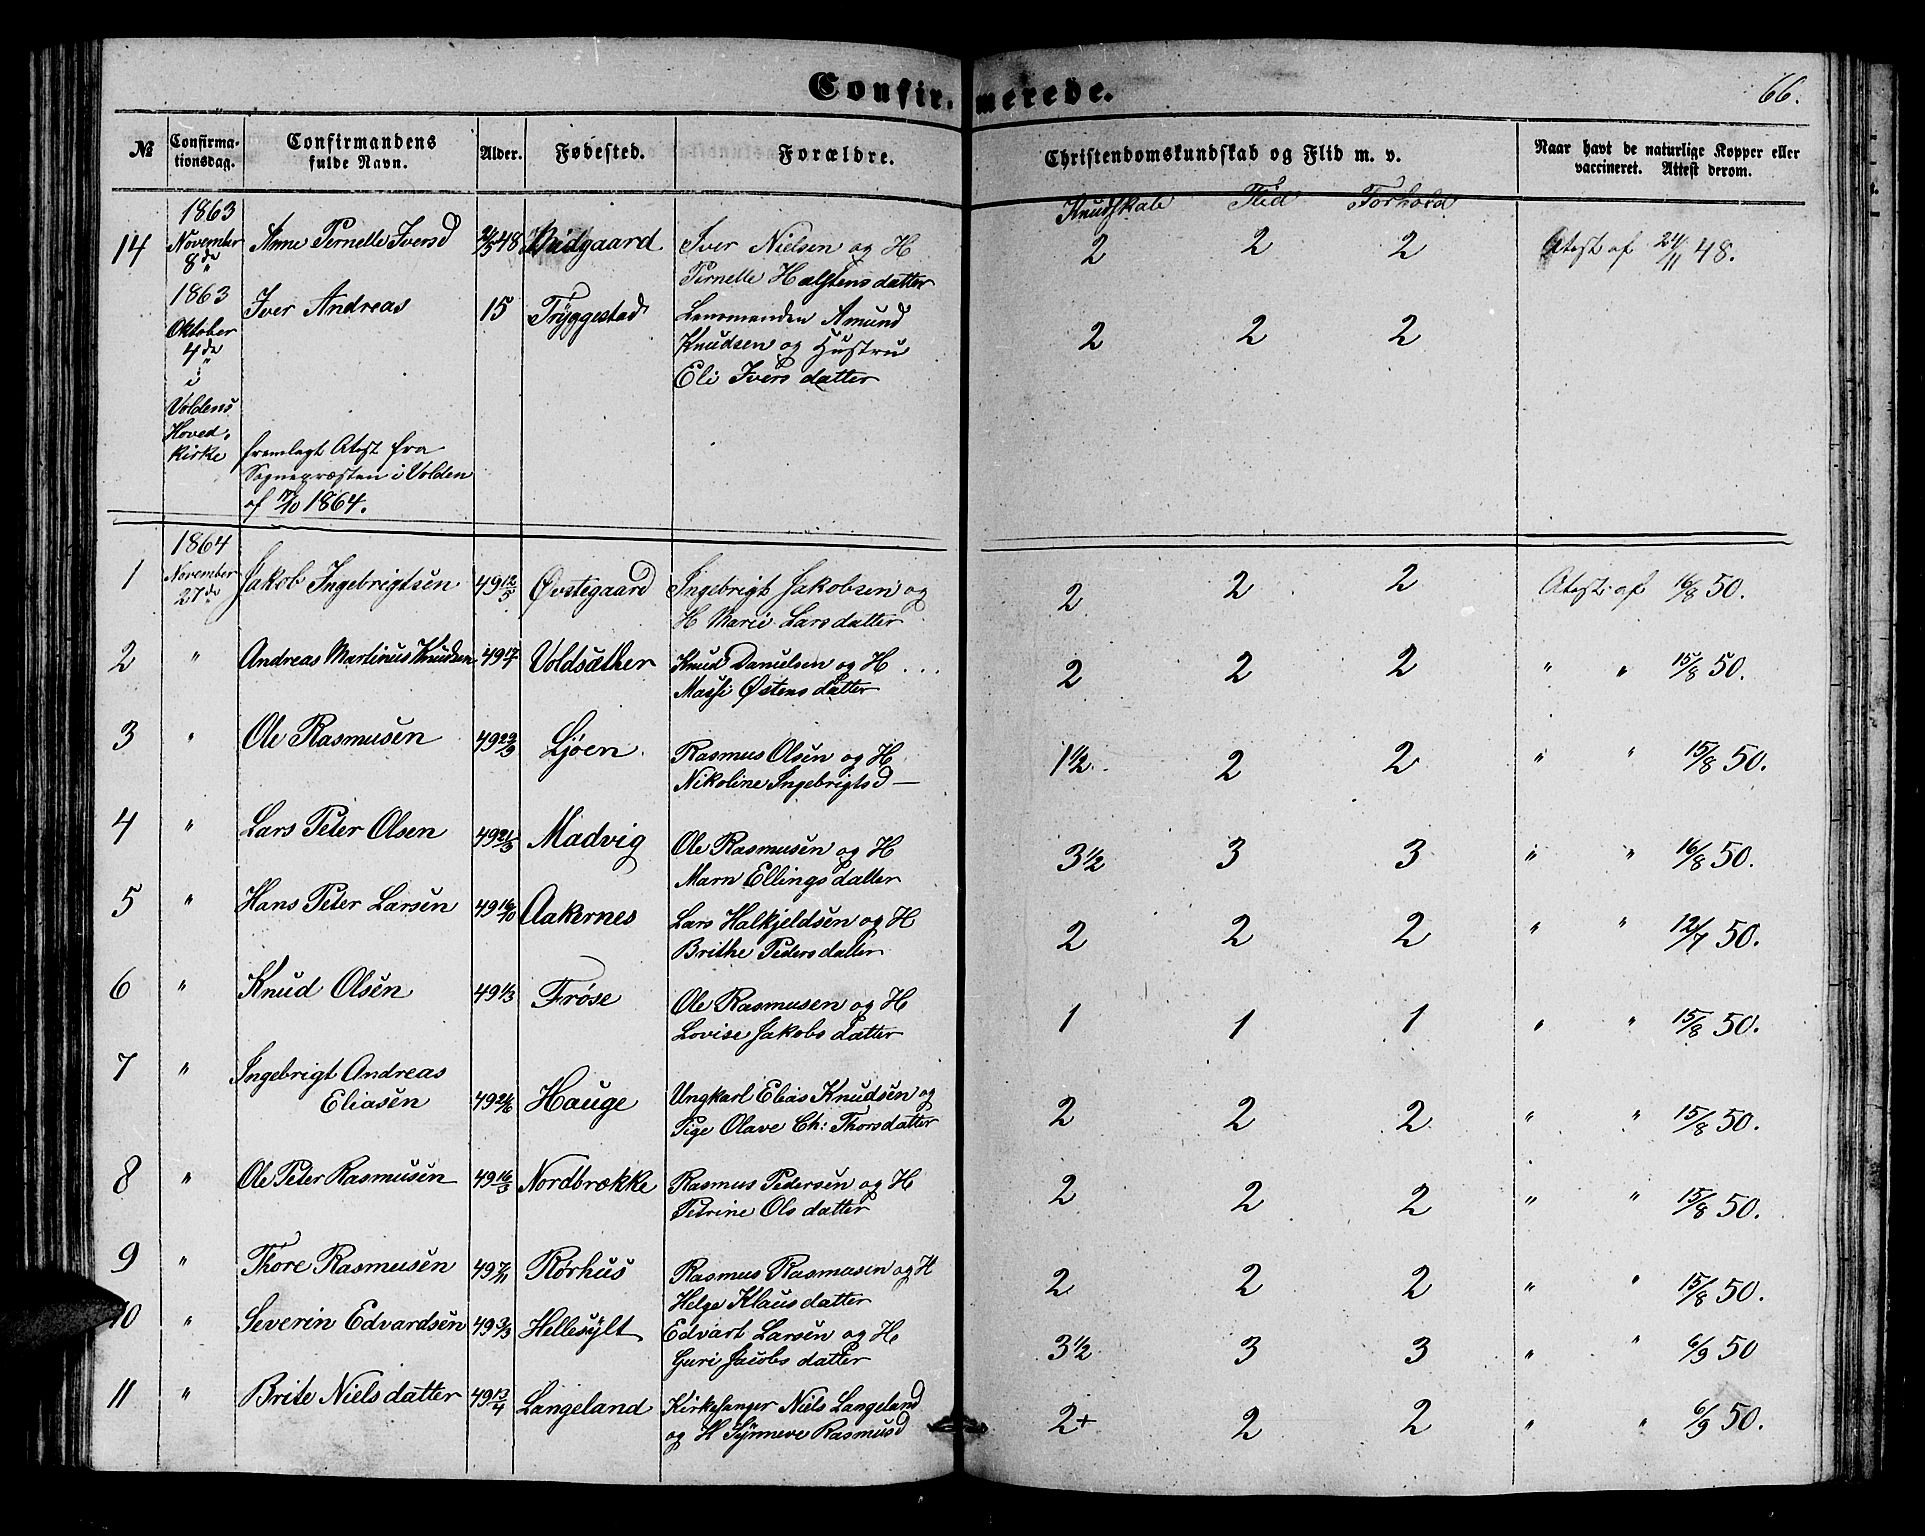 Confirmerede.
66.
№ Confirmationsdag. Confirmandens fulde Navn. Alder. Fødested. Forældre. Christendomskundskab og Flid m. v. Naar havt de naturlige Kopper eller vaccineret. Attest derom.
Kundskab Flid Forhold
14 1863 November 8de Anne Pernelle Iversd 48 Iver Nielsen og H 2 2 2 Atest af 24/11 48.
Pernelle Halstensdatter
1863 Oktober 4de i Voldens Hoved-kirke Iver Andreas 15 Tryggestad Lensmanden Amund 2 2 2
Knudsen og Hustru
Eli Iversdatter
fremlagt Atest fra
Sognepræsten i Volden
af 17/10 1864.
1864
1 November 27de Jakob Ingebrigtsen 49 12/5 Øvstegaard Ingebrigt Jakobsen og 2 2 2 Atest af 16/8 50.
H Marie Larsdatter
2 " Andreas Martinus Knudsen 49 Voldsæther Knud Danielsen og H 2 2 2 " " 15/8 50.
Massi Østensdatter
3 " Ole Rasmusen 49 29/3 Ljøen Rasmus Olsen og H 1½ 2 2 " " 15/8 50.
Nikoline Ingebrigtsd—
4 " Lars Peter Olsen 49 21/3 Madvig Ole Rasmusen og H 3½ 3 3 " " 16/8 50.
Marn Ellingsdatter
5 " Hans Peter Larsen 49 16/10 Aakernes Lars Halkjeldsen og H 2 2 2 " " 12/7 50.
Brithe Pedersdatter
6 " Knud Olsen 49 1/3 Frøse Ole Rasmusen og H 1 1 1 " " 15/8 50.
Lovise Jakobsdatter
7 " Ingebrigt Andreas
Eliasen 49 24/6 Hauge Ungkarl Elias Knudsen og 2 2 2 " " 15/8 50.
Pige Olave Ch: Thorsdatter
8 " Ole Peter Rasmusen 49 16/3 Nordbrække Rasmus Pedersen og H 2 2 2 " " 15/8 50.
Petrine Olsdatter
9 " Thore Rasmusen 49 7/11 Rørhus Rasmus Rasmusen og H 2 2 2 " " 15/8 50.
Helge Klausdatter
10 " Severin Edvardsen 49 3/3 Hellesylt Edvart Larsen og H 3½ 3 3 " " 6/9 50
Guri Jacobsdatter
11 " Brite Nielsdatter 49 13/4 Langeland Kirkesanger Niels Langeland 2+ 2 2 " " 6/9 50.
og H Synneve Rasmusd